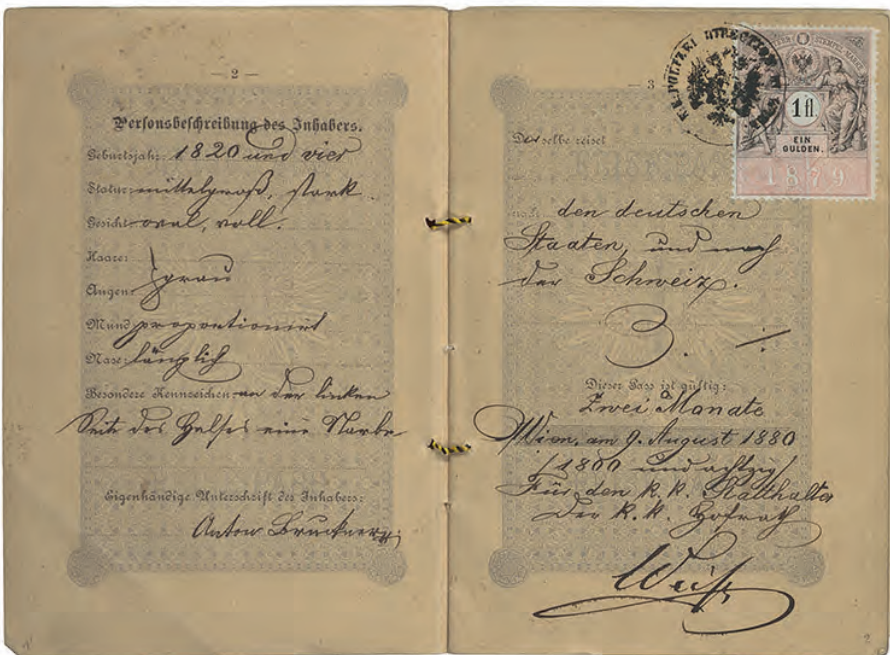 — 2 —
Personsbeschreibung des Inhabers.
Geburtsjahr: 1820 und vier
Statur: mittelgroß, stark
Gesicht: oval, voll.
Haare:
Augen: grau
Mund: proportionirt
Nase: länglich
Besondere Kennzeichen: an der linken
Seite des Halses eine Narbe
Eigenhändige Unterschrift des Inhabers:
Anton Bruckner
K.K. POLIZEI DIRECTION
STEMPEL MARKE
1 fl
EIN
GULDEN.
1879
— 3
Derselbe reiset
nach den deutschen
Staaten, und nach
der Schweiz.
3. ÷
Dieser Pass ist gültig:
Zwei Monate
Wien, am 9. August 1880
/1800 und achtzig/
Für den k. k. Statthalter
Der k. k. Hofrath
2